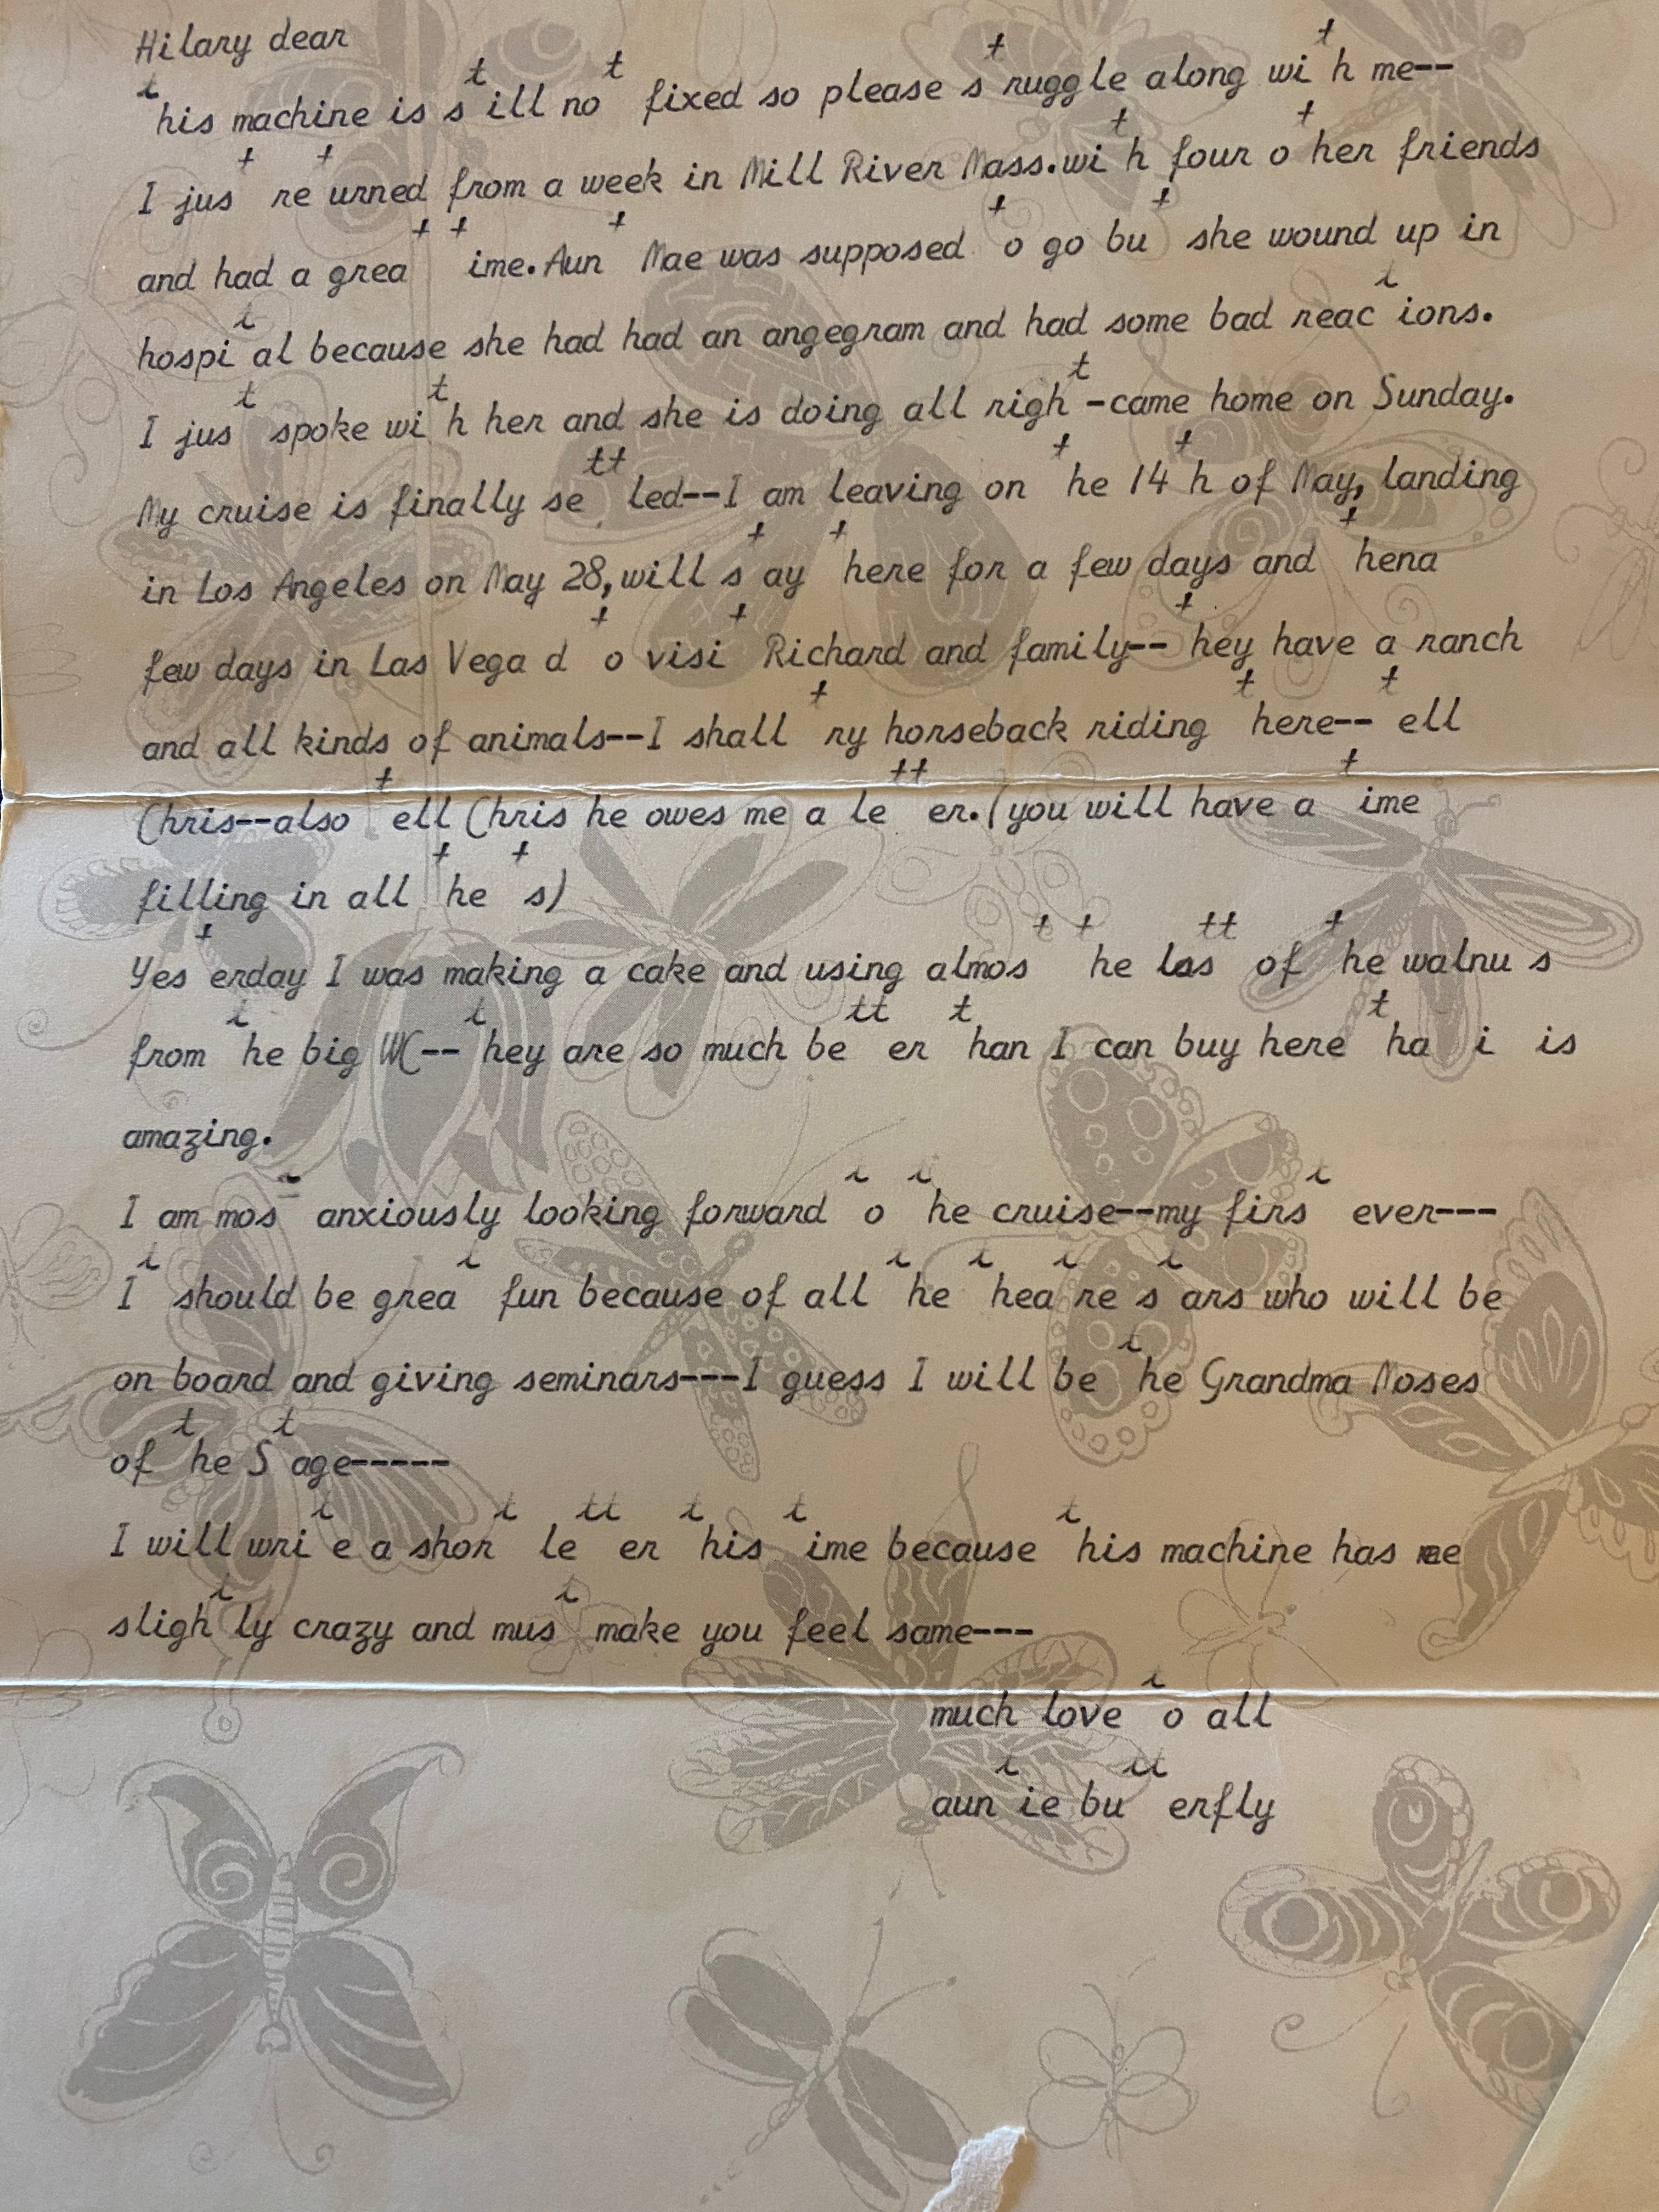 Hilary dear
this machine is still not fixed so please struggle along with me--
I just returned from a week in Mill River Mass.with four other friends
and had a great time.Aunt Mae was supposed to go but she wound up in
hospital because she had had an angegram and had some bad reactions.
I just spoke with her and she is doing all right-came home on Sunday.
My cruise is finally settled--I am leaving on the 14th of May, landing
in Los Angeles on May 28,will stay there for a few days and thena
few days in Las Vega d to visit Richard and family--they have a ranch
and all kinds of animals--I shall try horseback riding there--tell
Chris--also tell Chris he owes me a letter.(you will have a time
filling in all the ts)
Yesterday I was making a cake and using almost the lastt of the walnu s
from the big WC--they are so much better than I can buy here tha i is
amazing.
I am most anxiously looking forward to the cruise--my first ever---
It should be great fun because of all the theatre stars who will be
on board and giving seminars---I guess I will be the Grandma Moses
of the Stage-----
I will write a short letter this time because this machine has me
slightly crazy and must make you feel same---
much love to all
auntie butterfly